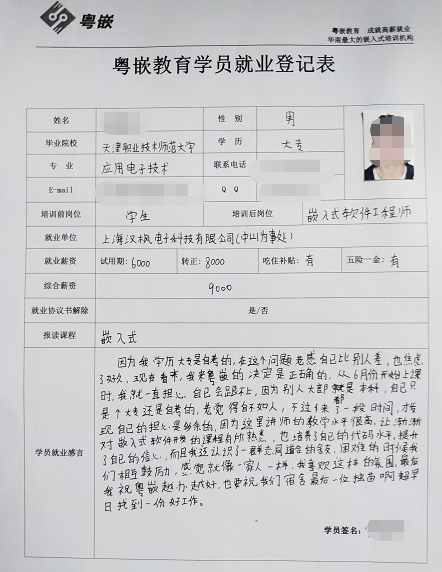 粤嵌
粤嵌教育 成就高薪就业
华南最大的嵌入式培训机构
粤嵌教育学员就业登记表
姓名 性 别 男
毕业院校 天津职业技术师范大学 学 历 大专
专 业 应用电子技术 联系电话
E-mail Q Q
培训前岗位 学生 培训后岗位 嵌入式软件工程师
就业单位 上海汉枫电子科技有限公司(中山办事处)
就业薪资 试用期:6000 转正:8000 吃住补贴:有 五险一金:有
综合薪资 9000
就业协议书解除 是/否
报读课程 嵌入式
学员就业感言
因为我学历大专是自考的,在这个问题老感自己比别人差,也焦虑
了好久,现在看来,我来粤嵌的决定是正确的,从6月份开始上课
时,我就一直担心自己会跟不上,因为别人大部都是本科,自己只
是个大专还是自考的,总觉得自不如人,不过来了一段时间,才发
现自己的担心是多余的,因为这里讲师的教学水平很高,让渐渐
对嵌入式软件开发的课程有所熟悉,也培养了自己的代码水平,提升
了自己的信心,而且我还认识了一群志同道合的舍友,困难的时候我
们相互鼓励,感觉就像一家人一样,我喜欢这样的氛围,最后
我祝粤嵌越办越好,也要祝我们宿舍最后一位独苗啊超早
日找到一份好工作。
学员签名: